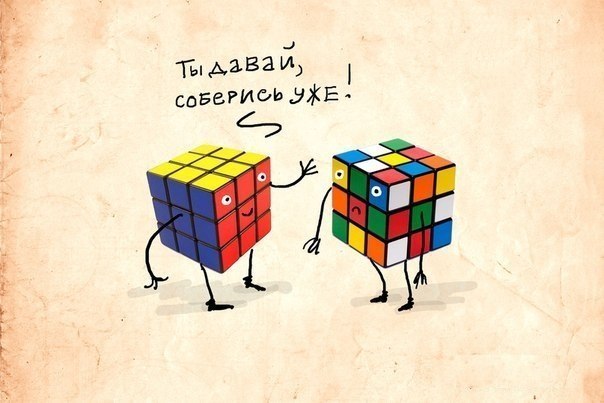 Ты давай,
соберись уже!